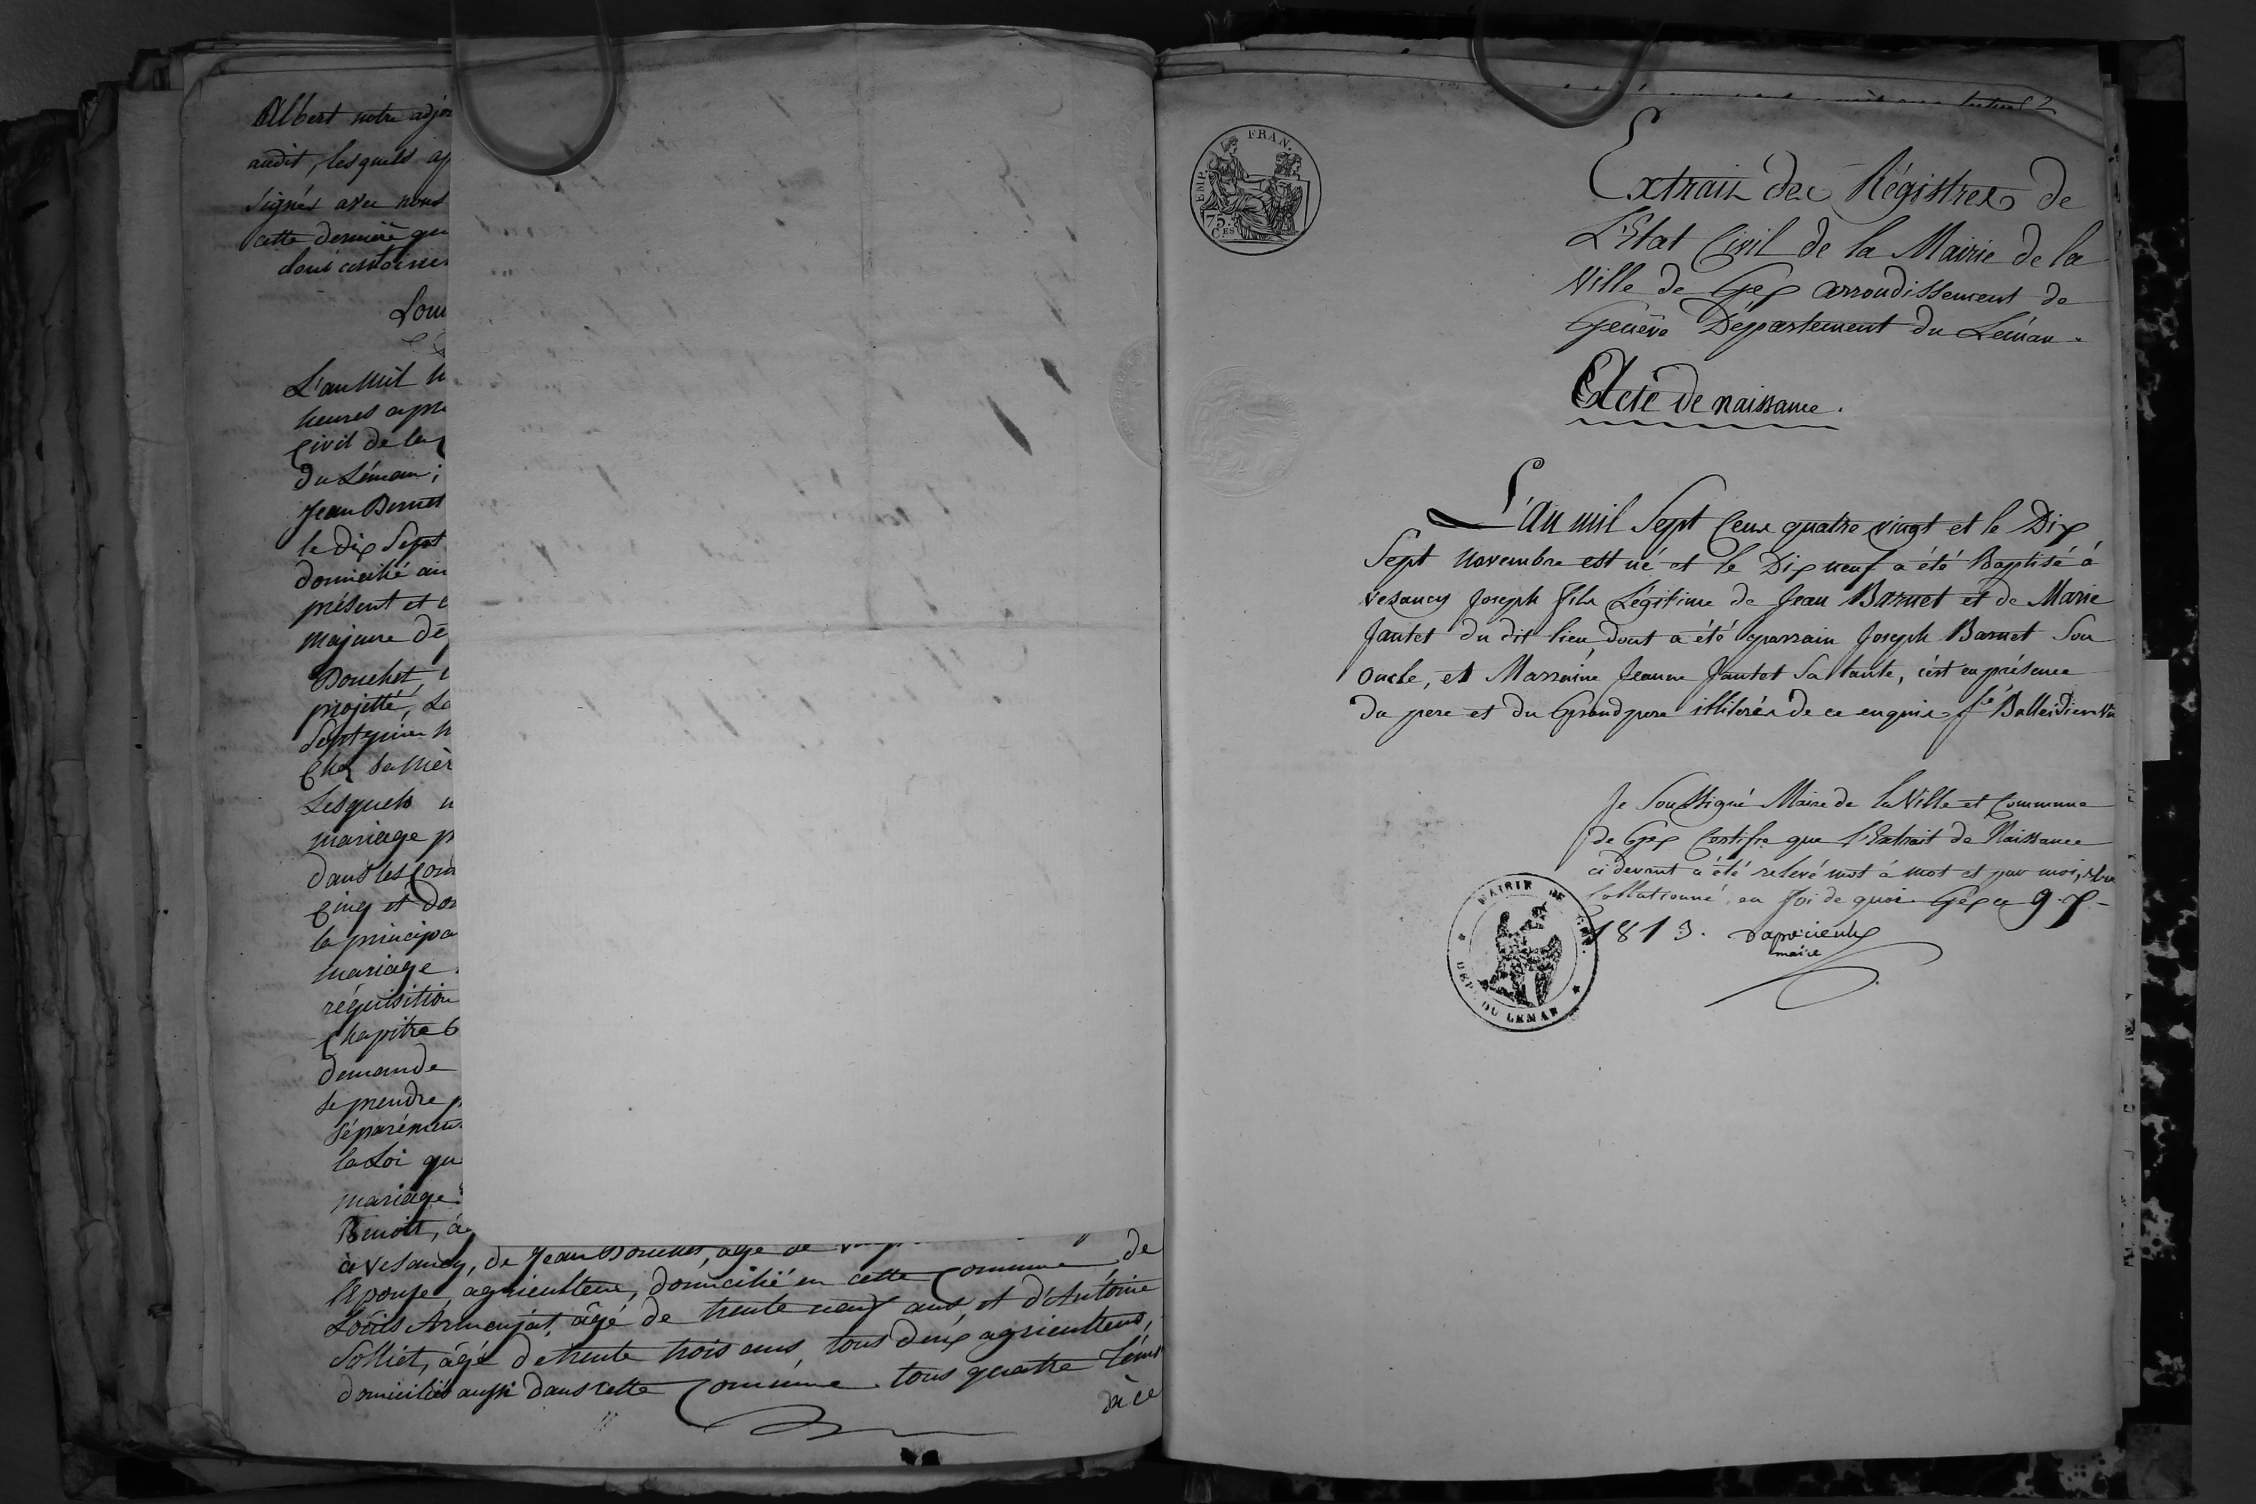 Albert notre adjoi
audit, lesquels ap
signés avec nous
cette dernière qu
Loui
L'an Mil h
heures apr
Civil de la
du Léman;
Jean Bernet
le dix Sept
domicilié au
présent et c
majeure de
Bouchet,
projetté, Lo
Sept
Chez sa Mèr
Lesquels
mariage p
dans les Com
Cinq et do
la principa
mariage
réquisition
Chapitre 6
demande
se prendre p
séparément
la Loi qu
mariage
Benoit, â
à Vesancy, de Jean Bouchet, âgé de
l'Epouse, agriculteur, domicilié en cette Commune, de
Louis Armenjat, âgé de trente neuf ans, et d'Antoine
Solliet, âgé de trente trois ans, tous deux agriculteurs,
domiciliés aussi dans cette Commune tous quatre Témo
de ce
EMP. FRAN.
75.
CES
Extrait des Régistres de
L'Etat Civil de la Mairie de la
Ville de Gex arrondissement de
Genève Département du Léman.
Acte de naissance.
L'an mil Sept Cent quatre vingt et le Dix
Sept Novembre est né et le Dix neuf a été Baptisé à
Vesancy Joseph fils Légitime de Jean Barnet et de Marie
Jantet du dit lieu, dont a été parrain Joseph Barnet Son
oncle, et Marraine Jeanne Jantet Sa tante, c'est en présence
du pere et du Grand pere illiterés de ce enquis
Je Soussigné Maire de la Ville et Commune
de Gex Certifie que l'Extrait de Naissance
ci devant a été relevé mot à mot et par moi,
Collationné, en foi de quoi Gex ce 9
1813.
maire
MAIRIE DE GEX.
DEPT. DU LEMAN